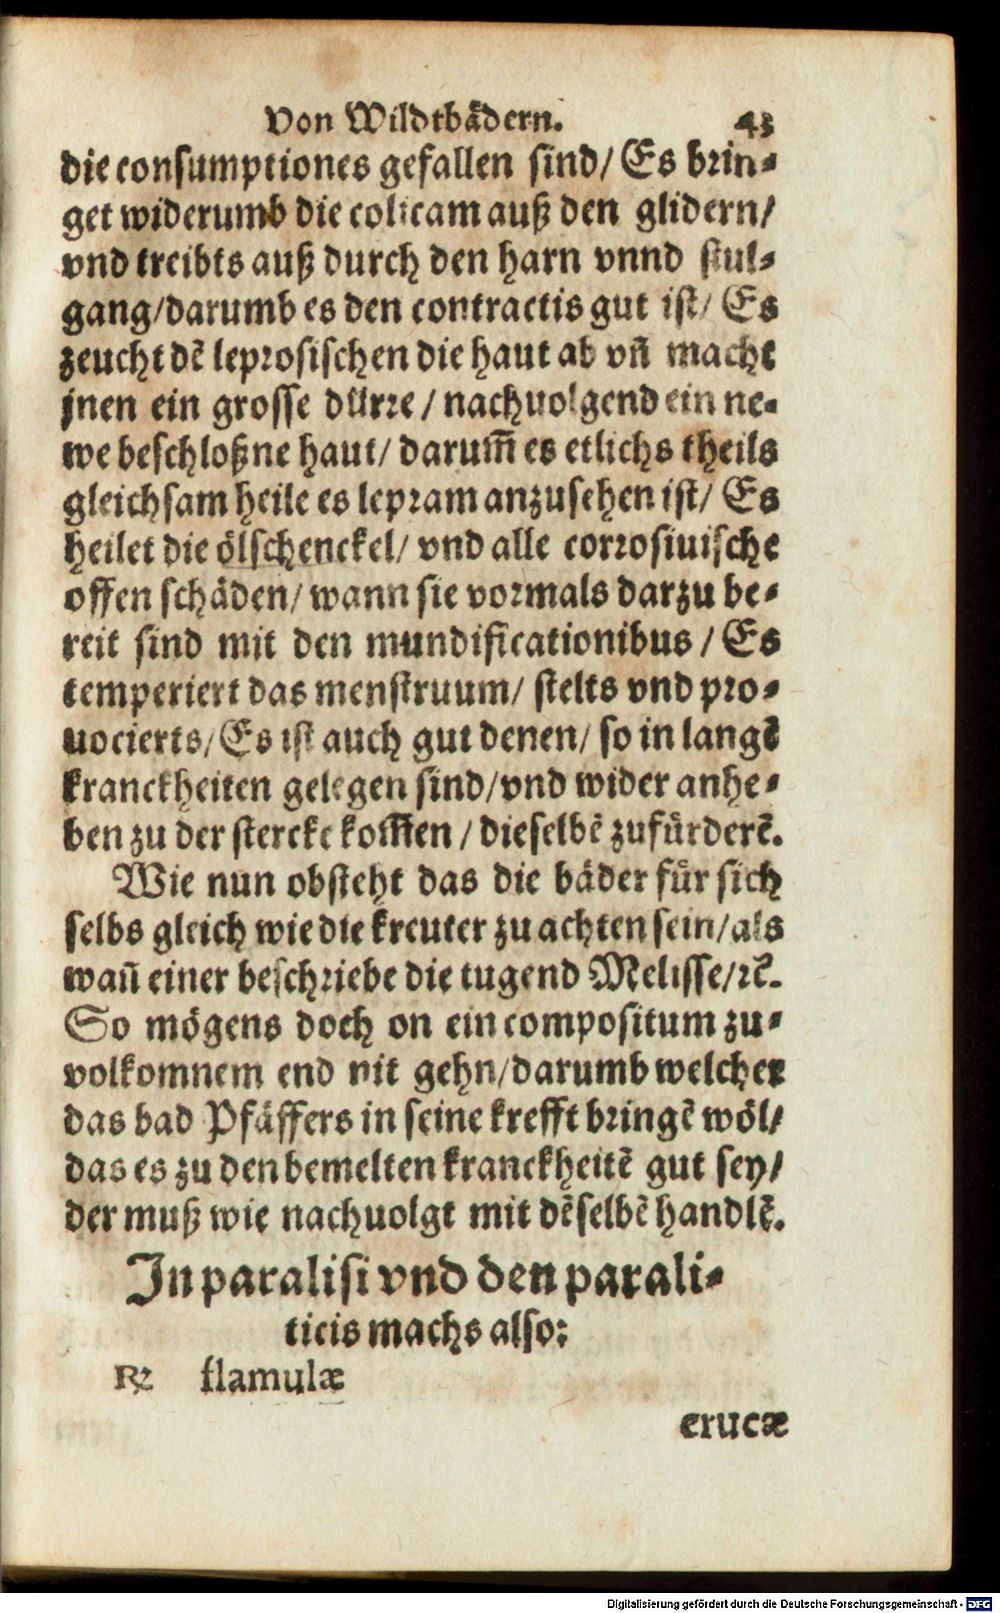 Von Wildtbädern. 43
die consumptiones gefallen sind/ Es brin-
get widerumb die colicam auß den glidern/
vnd treibts auß durch den harn vnnd stul-
gang/darumb es den contractis gut ist/ Es
zeucht dē leprosischen die haut ab vñ macht
jnen ein grosse dürre / nachuolgend ein ne-
we beschloßne haut/ darum̄ es etlichs theils
gleichsam heile es lepram anzusehen ist/ Es
heilet die ölschenckel/ vnd alle corrosiuische
offen schäden/ wann sie vormals darzu be-
reit sind mit den mundificationibus / Es
temperiert das menstruum/ stelts vnd pro-
uocierts/ Es ist auch gut denen/ so in langē
kranckheiten gelegen sind/vnd wider anhe-
ben zu der stercke kom̄en / dieselbē zufürderē.
Wie nun obsteht das die bäder für sich
selbs gleich wie die kreuter zu achten sein/als
wañ einer beschriebe die tugend Melisse/ꝛc̄.
So mögens doch on ein compositum zu-
volkomnem end nit gehn/darumb welcher
das bad Pfäffers in seine krefft bringē wöl/
das es zu den bemelten kranckheitē gut sey/
der muß wie nachuolgt mit dēselbē handlē.
In paralisi vnd den parali-
ticis machs also:
℞ flamulæ
erucæ
Digitalisierung gefördert durch die Deutsche Forschungsgemeinschaft - DFG